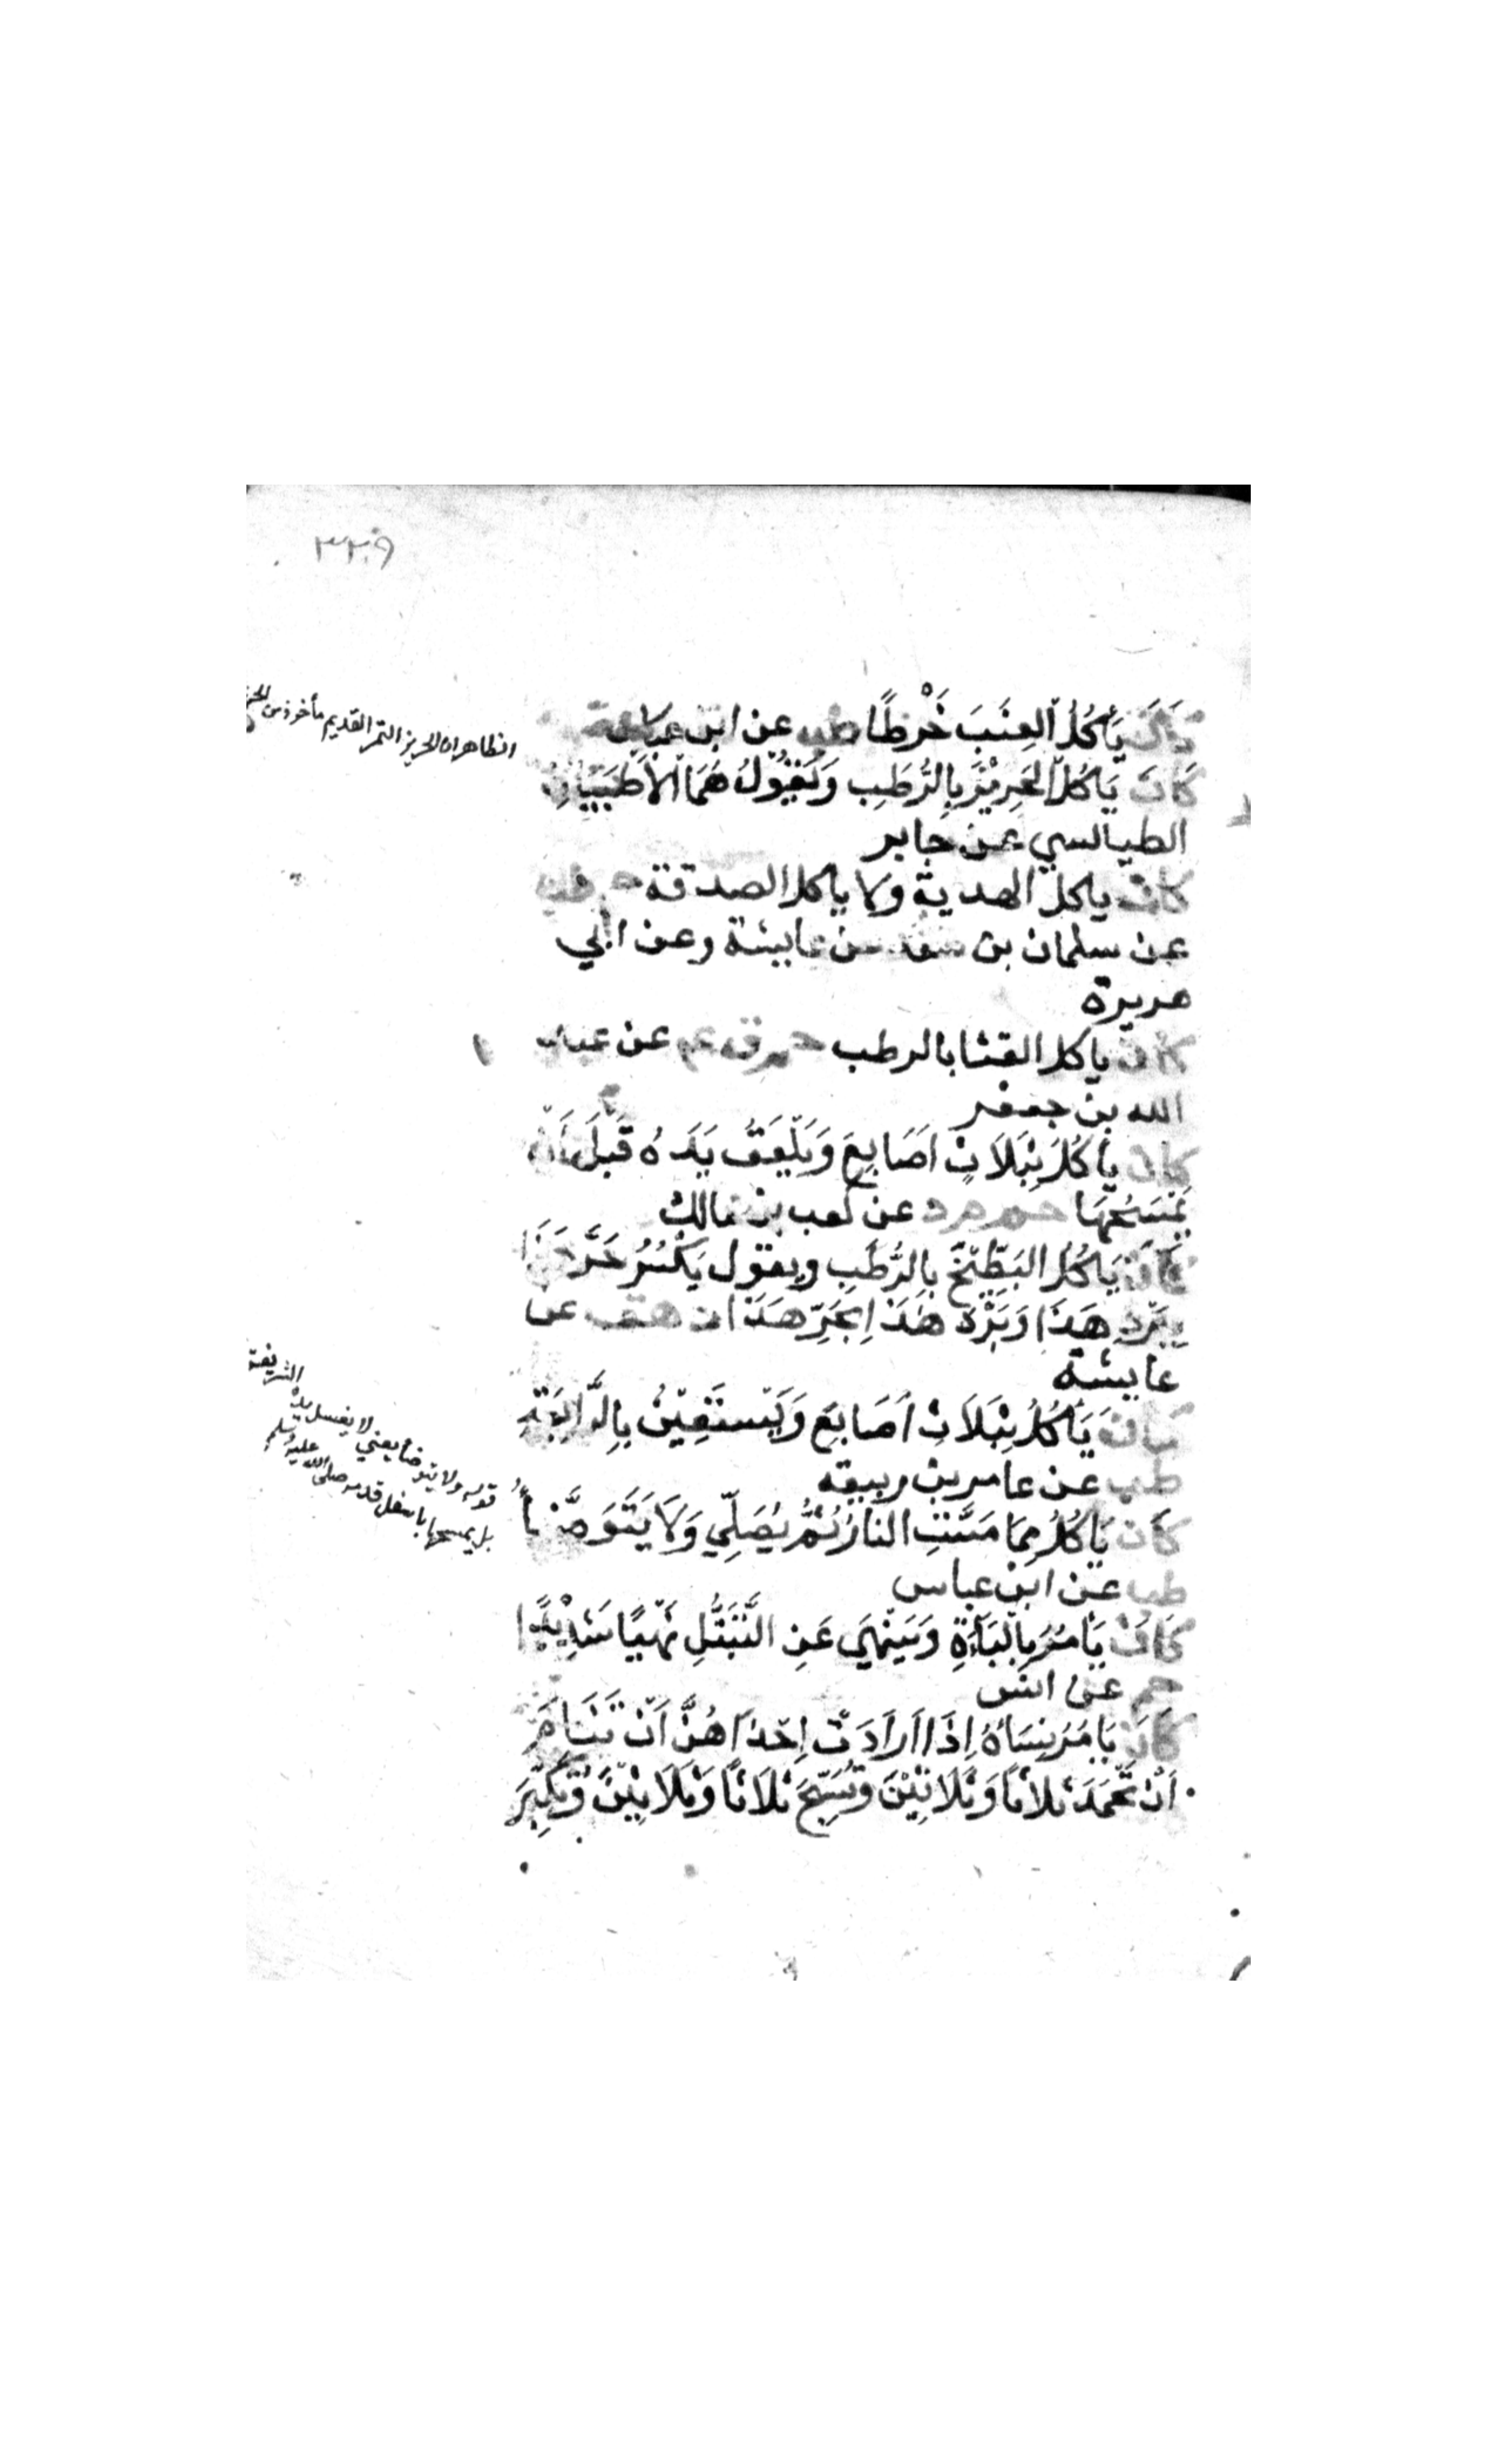 ٣٢٩
كَانَ يَأْكُلُ العِنَبَ خَرْطًا طب عن ابن عباس
كَانَ يَاكُلُ الخِرِبْزَ بِالرُّطَبِ وَيَقُوْلُ هُمَا الأَطْيَبَانِ
الطيالسي عن جابر
كان ياكل الهدية ولا ياكل الصدقة حم طب
عن سلمان بن سعد عن عايشة وعن ابي
هريرة
كان ياكل القثا بالرطب حم ق عم عن عبد
الله بن جعفر
كان يأكُلُ بِثَلَاثِ اَصَابِعَ وَيَلْعَقُ يَدَهُ قَبْلَ اَنْ
يَمْسَحَهَا حم م د عن كعب بن مالك
كَانَ يَاكُلُ البَطِّيْخَ بِالرُّطَبِ ويقول يَكْسُرُ حَرَّ هَذَا
بِبَرْدِ هَذَا وَبَرْدَ هَذَا بِحَرِّ هَذَا د هق عن
عايشة
كَانَ يَأكُلُ بِثَلَاثِ اَصَابِعَ وَيَسْتَعِيْنُ بِالرَّابِعَةِ
طب عن عامر بن ربيعة
كَانَ يَاكُلُ مِمَا مَسَّتِ النارُ ثُمَّ يُصَلِّي وَلَا يَتَوَضَّأُ
طب عن ابن عباس
كَانَ يَأْمُرُ بِالْبَآءَةِ وَيَنْهَي عَنِ التَّبَتُّلِ نَهْيًا شَدِيْدًا
حم عن انس
كَانَ يَامُرُ نِسَاءَهُ اِذَا اَرَادَتْ اِحْدَاهُنَّ اَنْ تَنَامَ
اَنْ تَحْمَدَ ثلاثًا وَثَلَاثِيْنَ وَتُسَبِّحَ ثلَاثًا وَثَلَاثِيْنَ وَتُكَبِّرَ
الظاهر ان الخربز التمر القديم مأخوذ من
قوله ولا يتوضأ يعني لا يغسل يده الشريفة
بل يمسحها باسفل قدمه صلى الله عليه وسلم